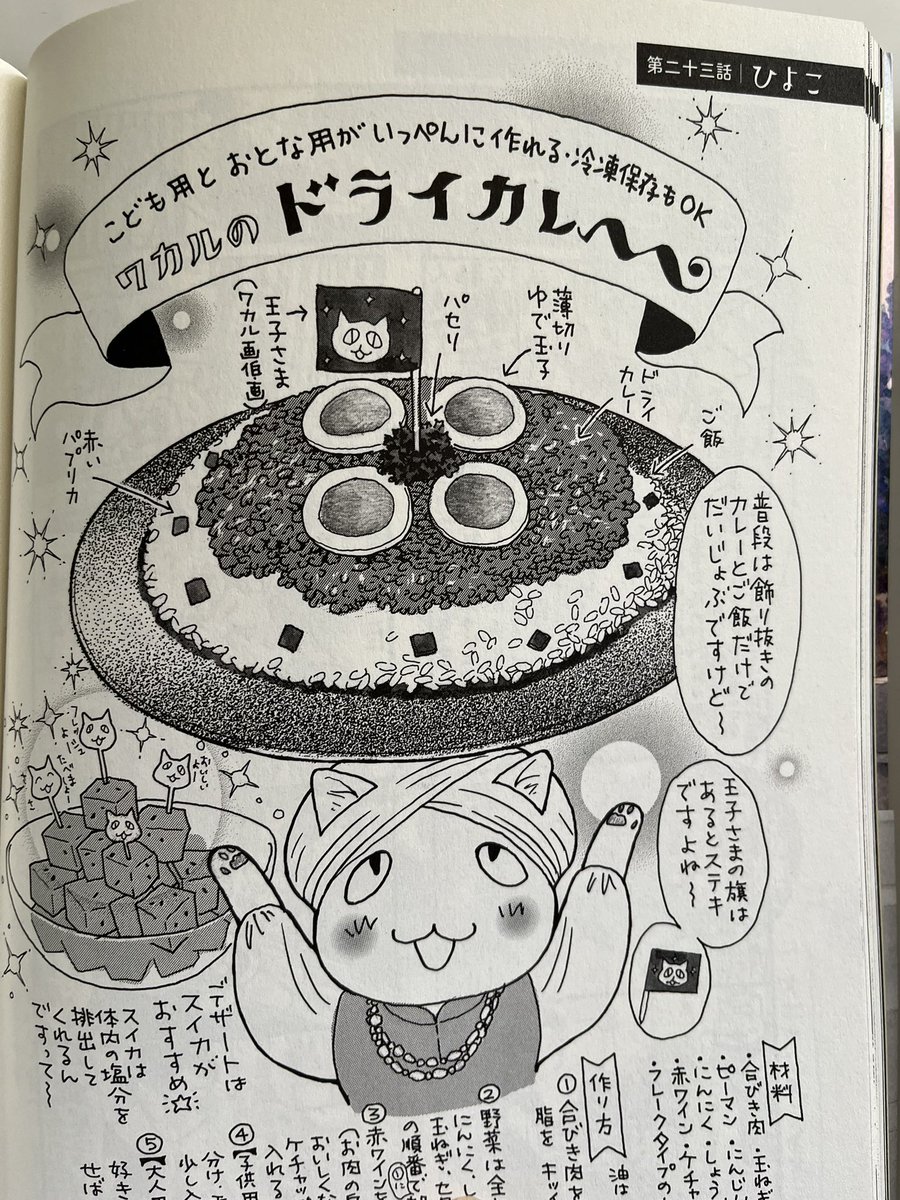 第二十三話 ひよこ
こども用と おとな用が いっぺんに作れる・冷凍保存もOK
ワカルの ドライカレー
王子さま
(ワカル画伯画)
パセリ
薄切り
ゆで玉子
ドライ
カレー
ご飯
赤い
パプリカ
普段は飾り抜きの
カレーとご飯だけで
だいじょぶですけど〜
王子さまの旗は
あるとステキ
ですよね〜
デザートは
スイカが
おすすめ☆
スイカは
体内の塩分を
排出して
くれるん
ですって〜
材料
・合びき肉 ・玉ね
・ピーマン ・にんじ
・にんにく ・しょう
・赤ワイン ・ケチャ
・フレークタイプの
作り方
油は
①合びき肉を
脂を キッ
②野菜は全
にんにく、し
玉ねぎ、セ
の順番で
③赤ワインを
(お肉の
おいしくな
ケチャッ
入れる
④【子供用
分け、
少し入
⑤【大人用
好き
せば